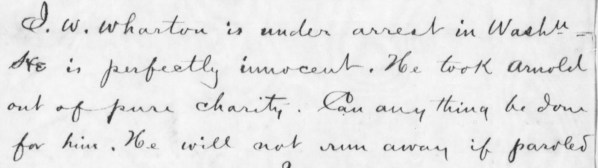 J. W. Wharton is under arrest in Washn –
He is perfectly innocent. He took Arnold
out of pure charity. Can any thing be done
for him. He will not run away if paroled